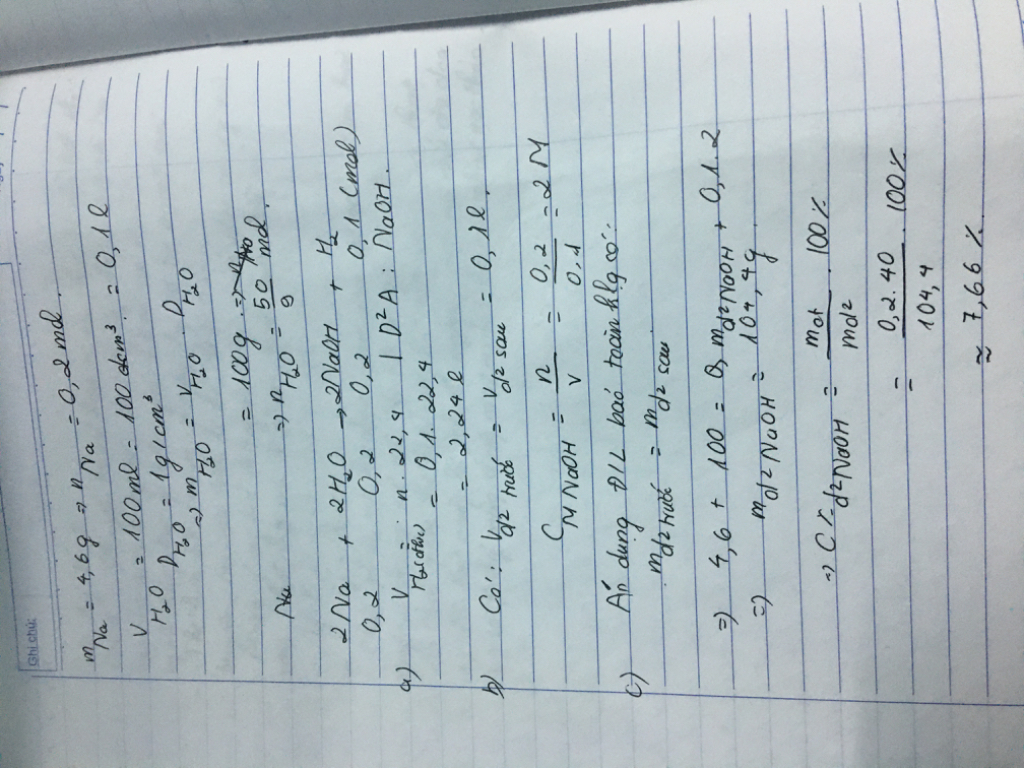 Ghi chú:
m Na = 4,6g => n Na = 0,2 mol.
V H₂O = 100ml = 100 dcm³. = 0,1 l
D H₂O = 1g/cm³
=> m H₂O = V H₂O . D H₂O
= 100g.
Na => n H₂O = 50/9 mol.
2Na + 2H₂O → 2NaOH + H₂
0,2 0,2 0,2 0,1 (mol)
a) V H₂(đktc) = n. 22,4 | D²A : NaOH.
= 0,1. 22,4
= 2,24 l
b) Có: V d² trước = V d² sau = 0,1 l.
C M NaOH = n/V = 0,2/0,1 = 2 M
c) Áp dụng ĐLL bảo toàn klg có:
m d² trước = m d² sau
=) 4,6 + 100 = m d² NaOH + 0,1.2
=) m d² NaOH = 104,4g
=> C% d² NaOH = m ct/m d² . 100%
= 0,2.40/104,4 . 100%
≈ 7,66%